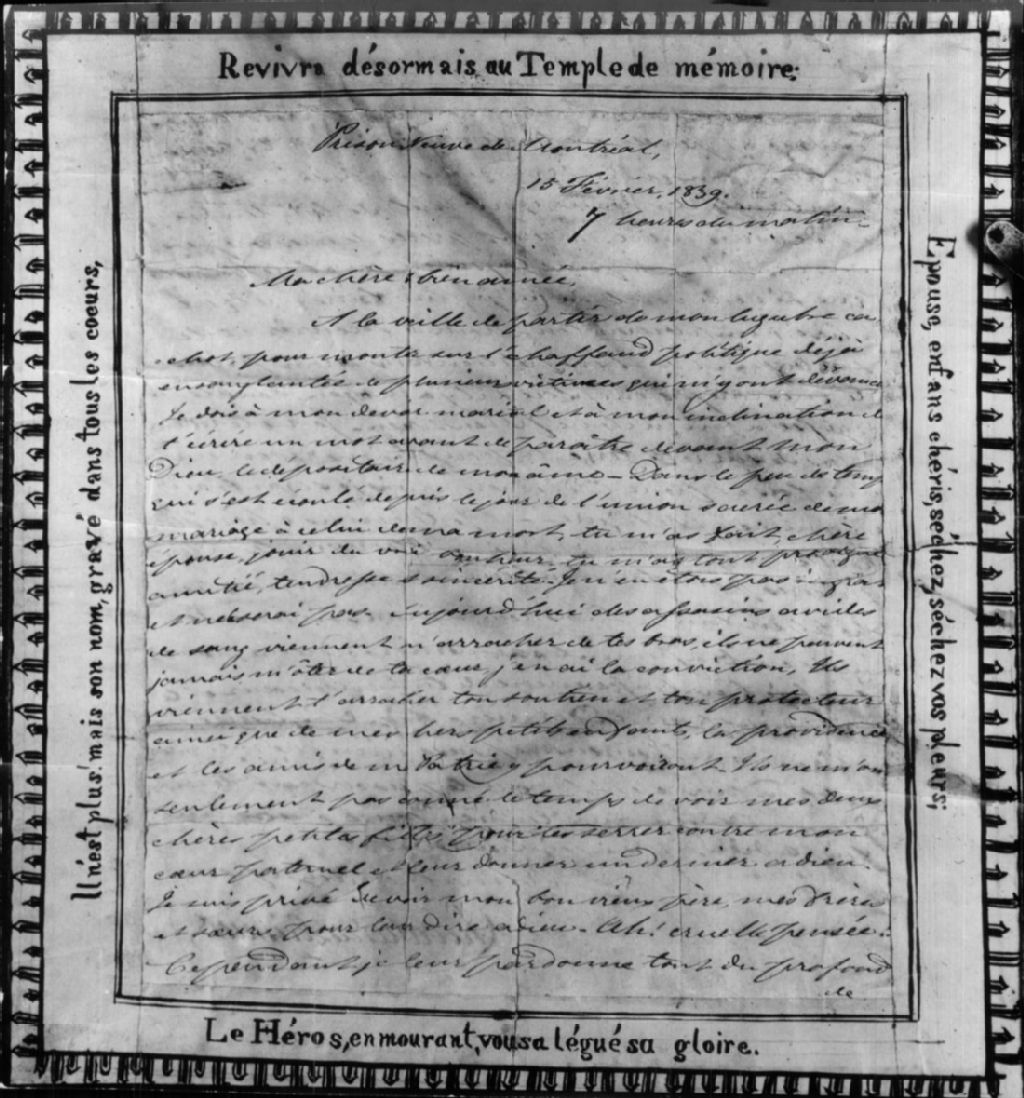 Revivre désormais au Temple de mémoire;
Prison Neuve de Montréal,
15 Février, 1839.
7 heures du matin.
Ma chère & bien aimée,
A la veille de partir de mon lugubre ca-
chot, pour monter sur l'échaffaud politique déjà
ensanglantée de plusieurs victimes qui m'y ont devancé
Je dois à mon devoir marial et à mon inclination de
t'écrire un mot avant de paraître devant mon
Dieu, le dépositaire de mon âme – Dans le peu de temps
qui s'est écoulé depuis le jour de l'union sacrée de mon
mariage à celui de ma mort, tu m'as fait, chère
épouse, jouir du vrai bonheur, tu m'as tout prodigué
amitié, tendresse & sincérité. Je n'en étois pas ingrat
et ne serai pas. Aujourd'hui des assassins avides
de sang viennent m'arracher de tes bras, ils ne peuvent
jamais m'ôter de ta cœur j'en ai la conviction, Ils
viennent t'arracher ton soutien et ton protecteur
ainsi que de mes chers petits enfants, la providence
et les amis de ma Patrie y pourvoiront. Ils ne m'ont
seulement pas donné le temps de voir mes deux
chères petites filles pour les serrer contre mon
cœur paternel et leur donner un dernier adieu.
Je suis privé de voir mon bon vieux père, mes frères
et sœurs pour leur dire adieu. Ah! cruelle pensée!
Cependant je leur pardonne tout du profond
de
Epouse, enfans chéris, séchez, séchez vos pleurs;
Il n'est plus! mais son nom, gravé dans tous les coeurs,
Le Héros, en mourant, vous a légué sa gloire.